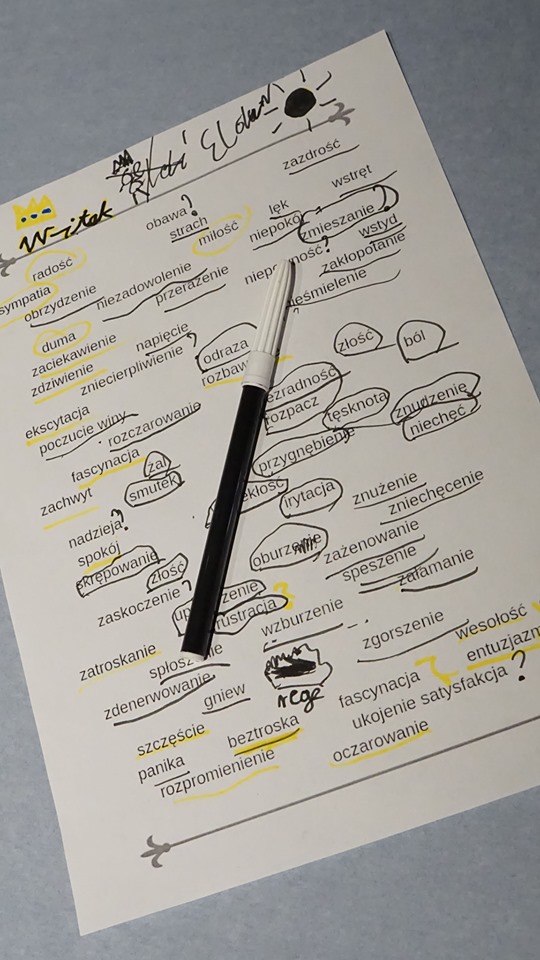 Witek
zazdrość
wstręt
obawa?
strach
lęk
zmieszanie
miłość
wstyd
radość
zakłopotanie
sympatia
niezadowolenie
obrzydzenie
przerażenie
duma
napięcie
złość
ból
zaciekawienie
zniecierpliwienie ?
odraza
zdziwienie
ekscytacja
tęsknota
znudzenie
poczucie winy
rozczarowanie
niechęć
fascynacja
żal
przygnębienie
zachwyt
smutek
irytacja
znużenie
zniechęcenie
nadzieja?
spokój
skrępowanie
złość
zażenowanie
speszenie
załamanie
zaskoczenie ?
wzburzenie
zatroskanie
zgorszenie
wesołość
zdenerwowanie
gniew
fascynacja
szczęście
beztroska
ukojenie satysfakcja ?
panika
oczarowanie
rozpromienienie